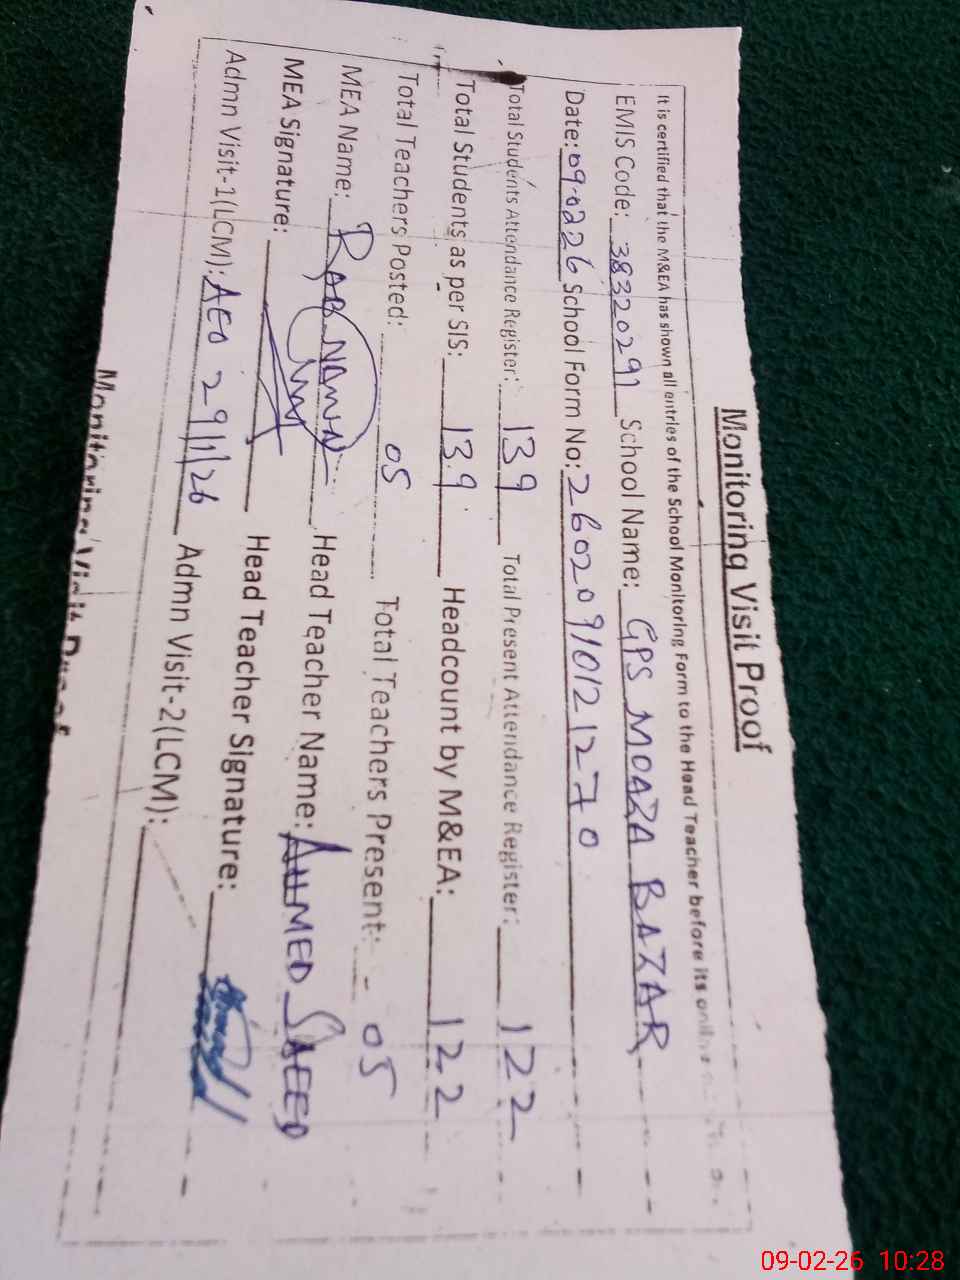 Monitoring Visit Proof
It is certified that the M&EA has shown all entries of the School Monitoring Form to the Head Teacher before its online
EMIS Code: 38320291 School Name: GPS MOAZA BAZAR
Date: 09-02 26 School Form No: 26020910121270
Total Students Attendance Register: 139 Total Present Attendance Register: 122
Total Students as per SIS: 139 Headcount by M&EA: 122
Total Teachers Posted: 05 Total Teachers Present: 05
MEA Name: RAB NAWAZ Head Teacher Name: AHMED SAEED
MEA Signature: Head Teacher Signature:
Admn Visit-1(LCM): AEO 29/1/26 Admn Visit-2(LCM):
Monitoring Visit Proof
09-02-26 10:28